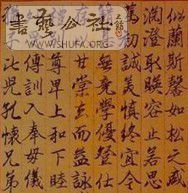 書藝公社
WWW.SHUFA.ORG
似蘭斯馨如松之盛
淵澄取暎容止若思
初誠美慎終宜令
無竟學優登仕
甘棠去而益詠
尊卑上和下睦
傅訓入奉母儀
比兒孔懷兄弟